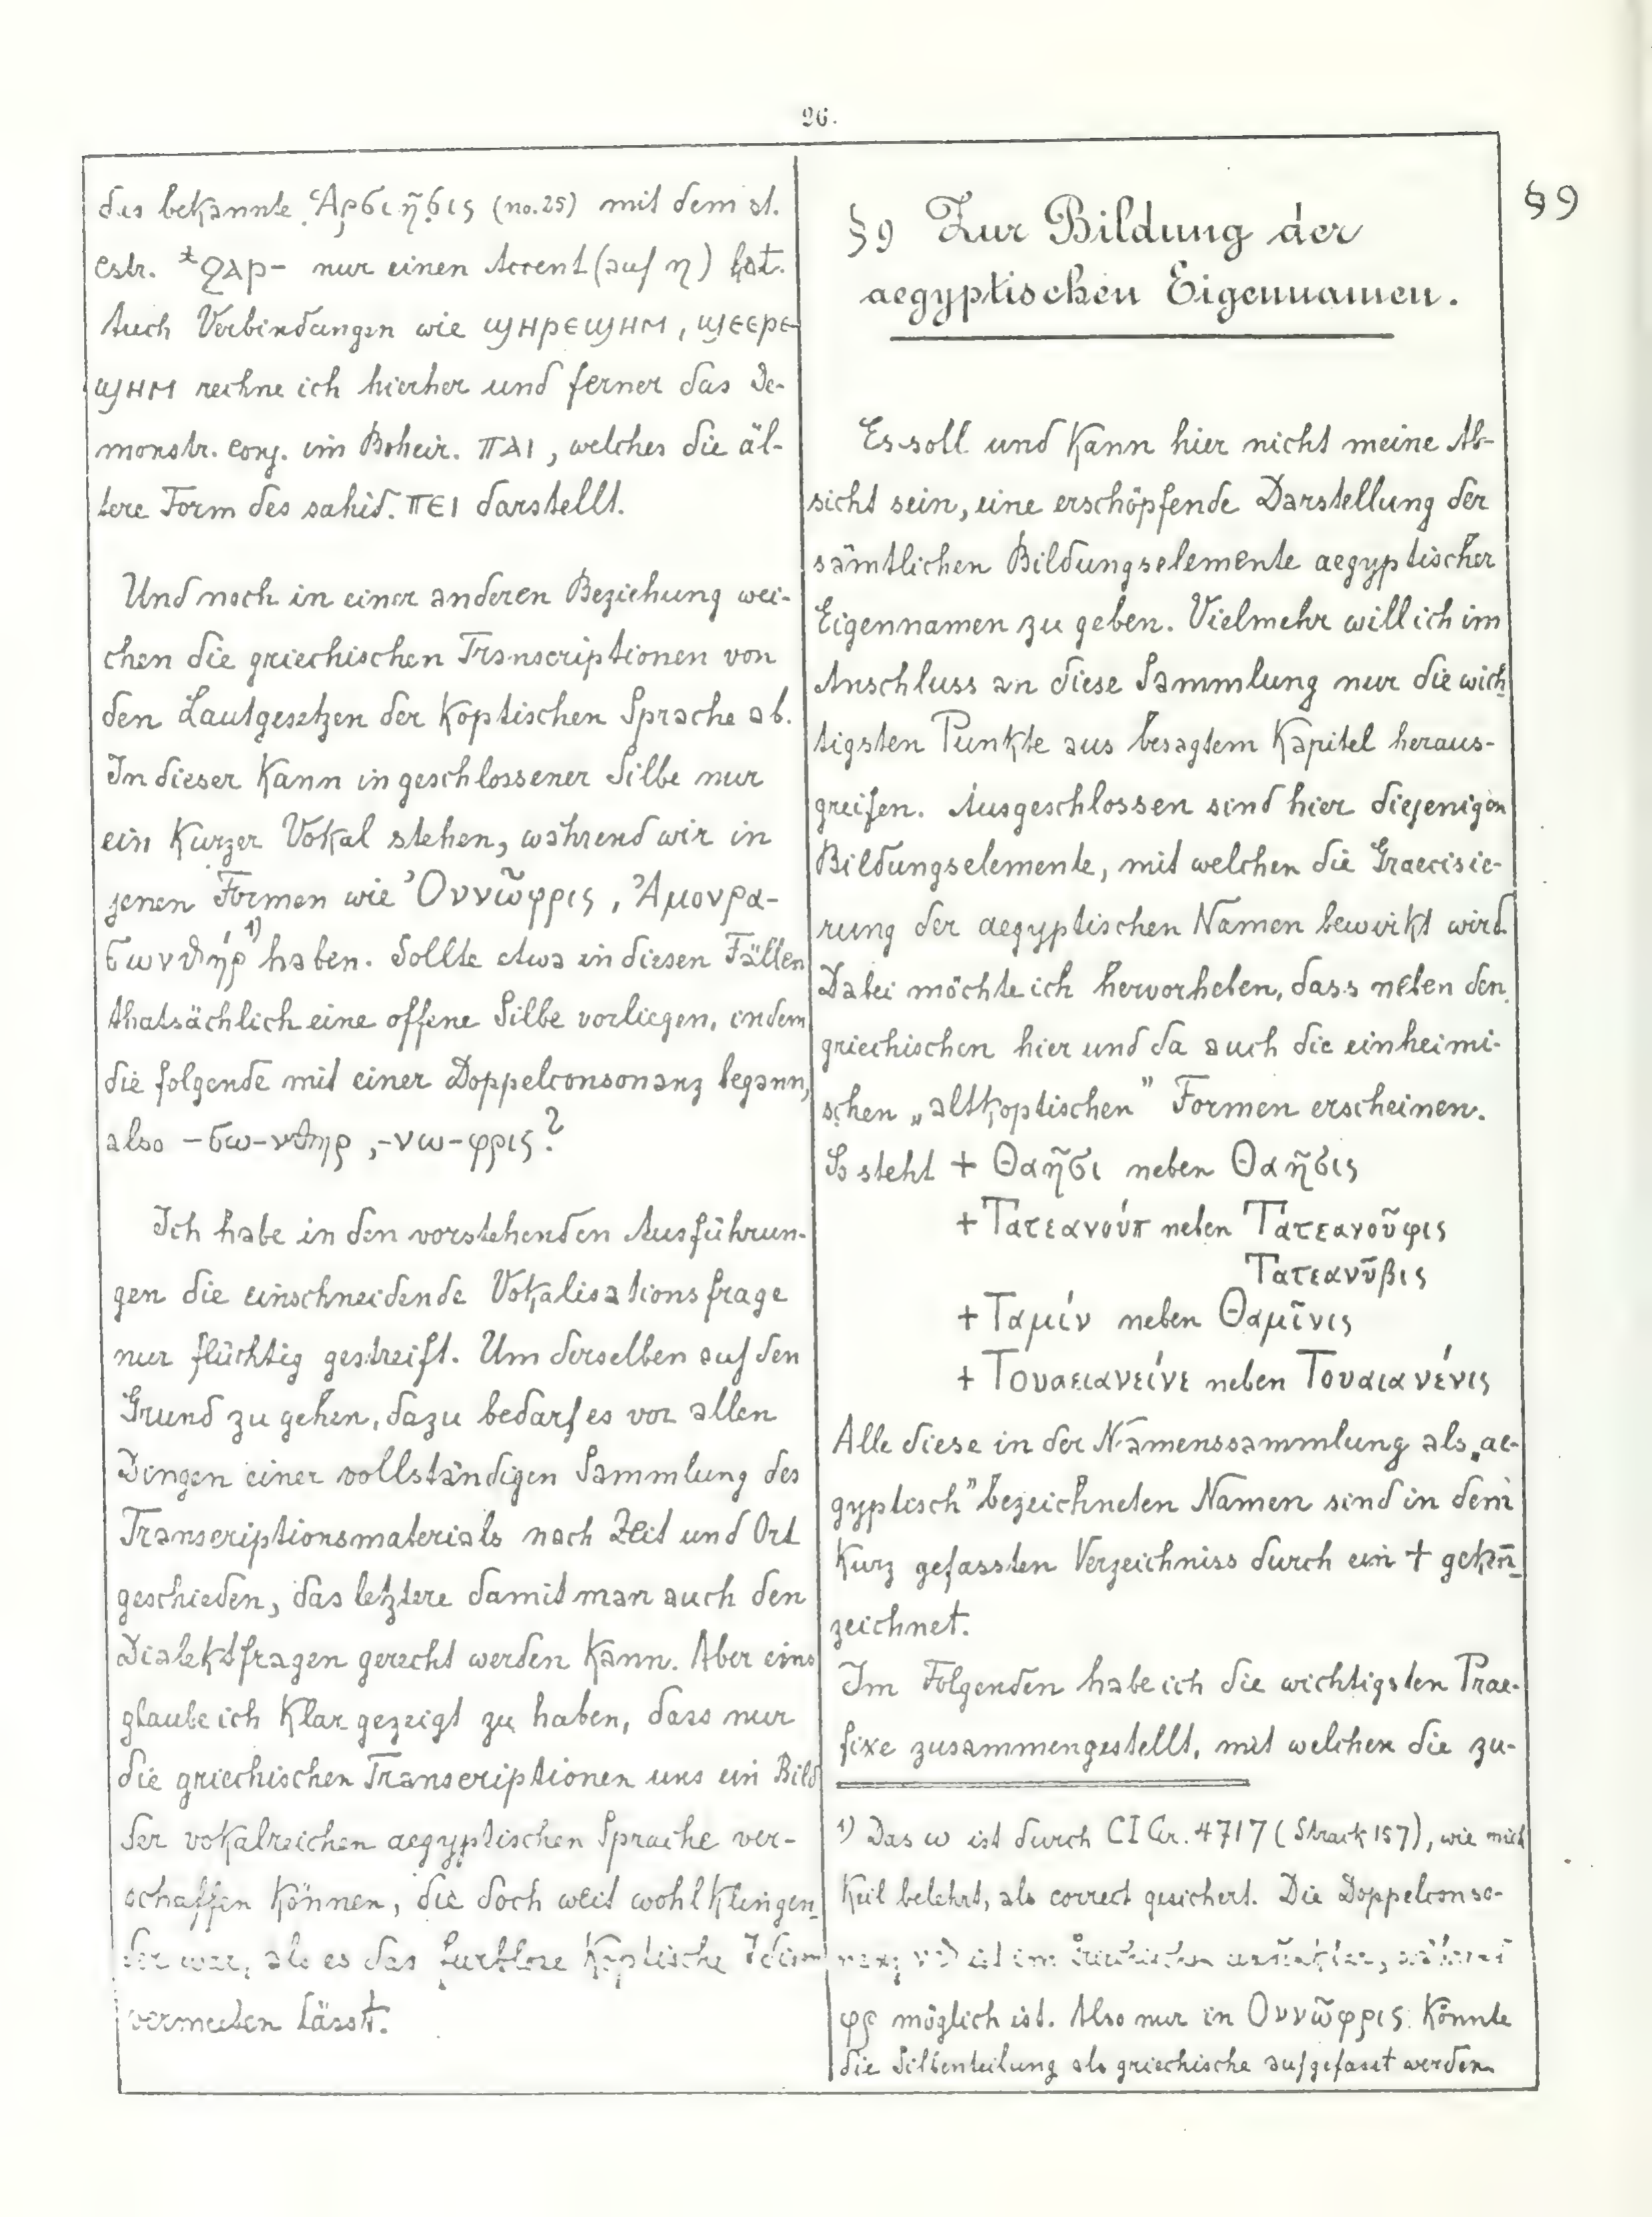 26.
das bekannte Ἁρσιῆσις (no. 25) mit dem st.
cstr. *ϩⲁⲣ- nur einen Accent (auf η) hat.
Auch Verbindungen wie ϣⲏⲣⲉϣⲏⲙ, ϣⲉⲉⲣⲉ-
ϣⲏⲙ rechne ich hierher und ferner das De-
monstr. conj. im Boheir. ⲡⲁⲓ, welches die äl-
tere Form des sahid. ⲡⲉⲓ darstellt.
Und noch in einer anderen Beziehung wei-
chen die griechischen Transcriptionen von
den Lautgesetzen der Koptischen Sprache ab.
In dieser Kann in geschlossener Silbe nur
ein Kurzer Vokal stehen, während wir in
jenen Formen wie Ὀννῶφρις, Ἀμονρα-
σωνθήρ 1) haben. Sollte etwa in diesen Fällen
thatsächlich eine offene Silbe vorliegen, indem
die folgende mit einer Doppelconsonanz begann,
also -σω-νθηρ, -νω-φρις?
Ich habe in den vorstehenden Ausführun-
gen die einschneidende Vokalisationsfrage
nur flüchtig gestreift. Um derselben auf den
Grund zu gehen, dazu bedarf es vor allen
Dingen einer vollständigen Sammlung des
Transcriptionsmaterials nach Zeit und Ort
geschieden, das letztere damit man auch den
Dialektfragen gerecht werden Kann. Aber eins
glaube ich Klar gezeigt zu haben, dass nur
die griechischen Transcriptionen uns ein Bild
der vokalreichen aegyptischen Sprache ver-
schaffen Können, die doch weit wohlklingen-
der war, als es das farblose Koptische Idiom
vermuten lässt.
§ 9 Zur Bildung der
aegyptischen Eigennamen.
§ 9
Es soll und Kann hier nicht meine Ab-
sicht sein, eine erschöpfende Darstellung der
sämtlichen Bildungselemente aegyptischer
Eigennamen zu geben. Vielmehr will ich im
Anschluss an diese Sammlung nur die wich-
tigsten Punkte aus besagtem Kapitel heraus-
greifen. Ausgeschlossen sind hier diejenigen
Bildungselemente, mit welchen die Graecisie-
rung der aegyptischen Namen bewirkt wird.
Dabei möchte ich hervorheben, dass neben den
griechischen hier und da auch die einheimi-
schen „altkoptischen" Formen erscheinen.
So steht + Θαῆσι neben Θαῆσις
+ Τατεανούπ neben Τατεανοῦφις
Τατεανῦβις
+ Ταμίν neben Θαμῖνις
+ Τουαειανείνε neben Τουαιανένις
Alle diese in der Namenssammlung als „ae-
gyptisch" bezeichneten Namen sind in dem
Kurz gefassten Verzeichniss durch ein + geken̄-
zeichnet.
Im Folgenden habe ich die wichtigsten Prae-
fixe zusammengestellt, mit welchen die zu-
1) Das ω ist durch CIGr. 4717 (Strack 157), wie mich
Keil belehrt, als correct gesichert. Die Doppelconso-
nanz νϑ ist im Griechischen undenkbar, während
φρ möglich ist. Also nur in Ὀννῶφρις Könnte
die Silbenteilung als griechische aufgefasst werden.